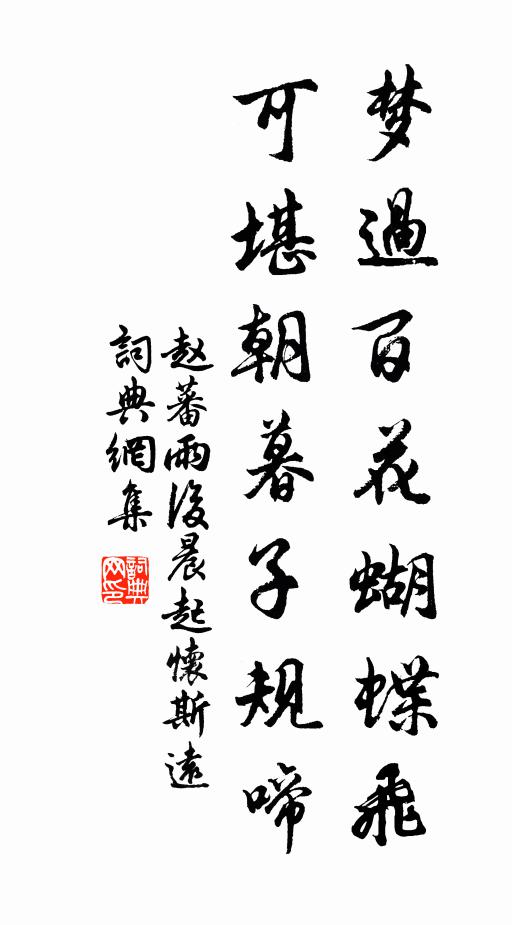 梦過百花蝴蝶飛
可堪朝暮子規啼
赵蕃雨後晨起懷斯遠
詞典網集
詞典
网印